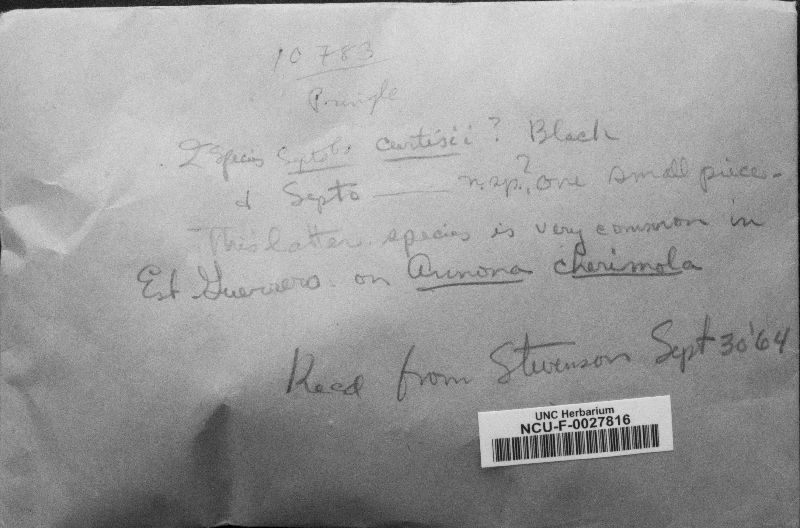 10783
Pringle
2 Species Septob. curtisii? Black
& Septo —— n.sp.?, one small piece -
This latter species is very common in
Est Guerrero. on Annona cherimola
Recd from Stevenson Sept 30 '64
UNC Herbarium
NCU-F-0027816